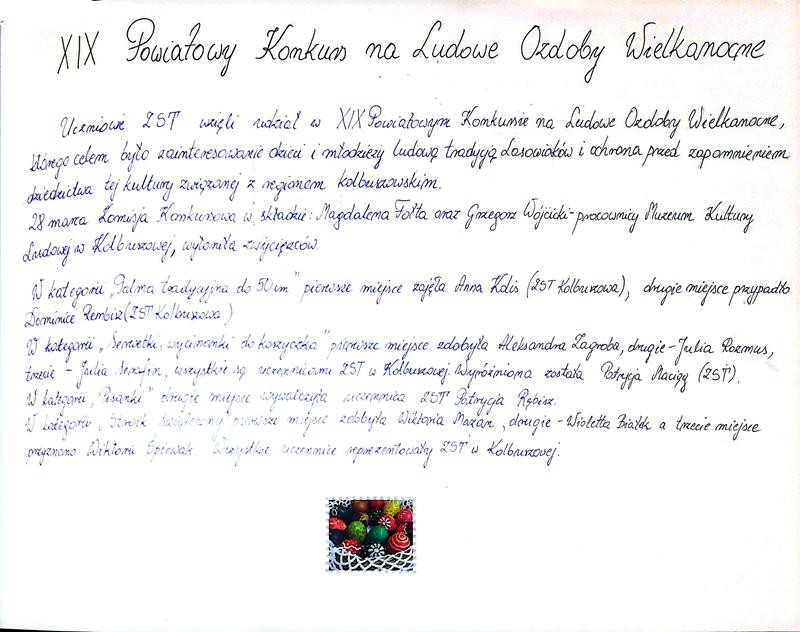 XIX Powiatowy Konkurs na Ludowe Ozdoby Wielkanocne
Uczniowie ZST wzięli udział w XIX Powiatowym Konkursie na Ludowe Ozdoby Wielkanocne,
którego celem było zainteresowanie dzieci i młodzieży ludową tradycją Lasowiaków i ochrona przed zapomnieniem
dziedzictwa tej kultury związanej z regionem kolbuszowskim.
28 marca Komisja Konkursowa w składzie: Magdalena Fołta oraz Grzegorz Wójcicki - pracownicy Muzeum Kultury
Ludowej w Kolbuszowej, wyłoniła zwycięzców.
W kategorii „Palma tradycyjna do 50 cm" pierwsze miejsce zajęła Anna Kolis (ZST Kolbuszowa), drugie miejsce przypadło
Dominice Rembisz (ZST Kolbuszowa)
W kategorii „Serwetki, wycinanki do koszyczka" pierwsze miejsce zdobyła Aleksandra Zagroba, drugie - Julia Rozmus,
trzecie - Julia Serafin, wszystkie są uczennicami ZST w Kolbuszowej. Wyróżniona została Patrycja Maciąg (ZST).
W kategorii „Pisanki" drugie miejsce wywalczyła uczennica ZST Patrycja Rębisz.
W kategorii „Stroik świąteczny" pierwsze miejsce zdobyła Wiktoria Mazan, drugie - Wioletta Białek a trzecie miejsce
przyznano Wiktorii Śpiewak. Wszystkie uczennice reprezentowały ZST w Kolbuszowej.